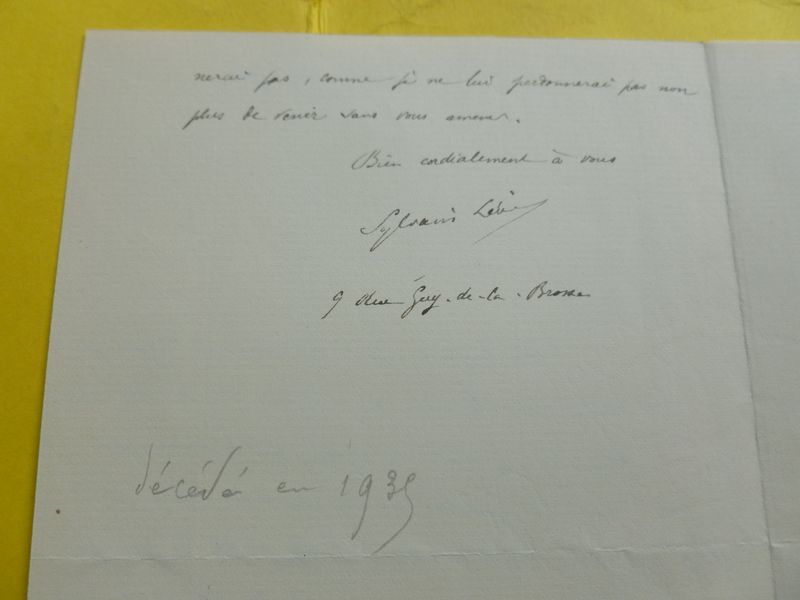 nerai pas, comme je ne lui pardonnerai pas non
plus de venir sans vous amener.
Bien cordialement à vous
Sylvain Lévi
9 Rue Guy-de-la-Brosse
décédé en 1935